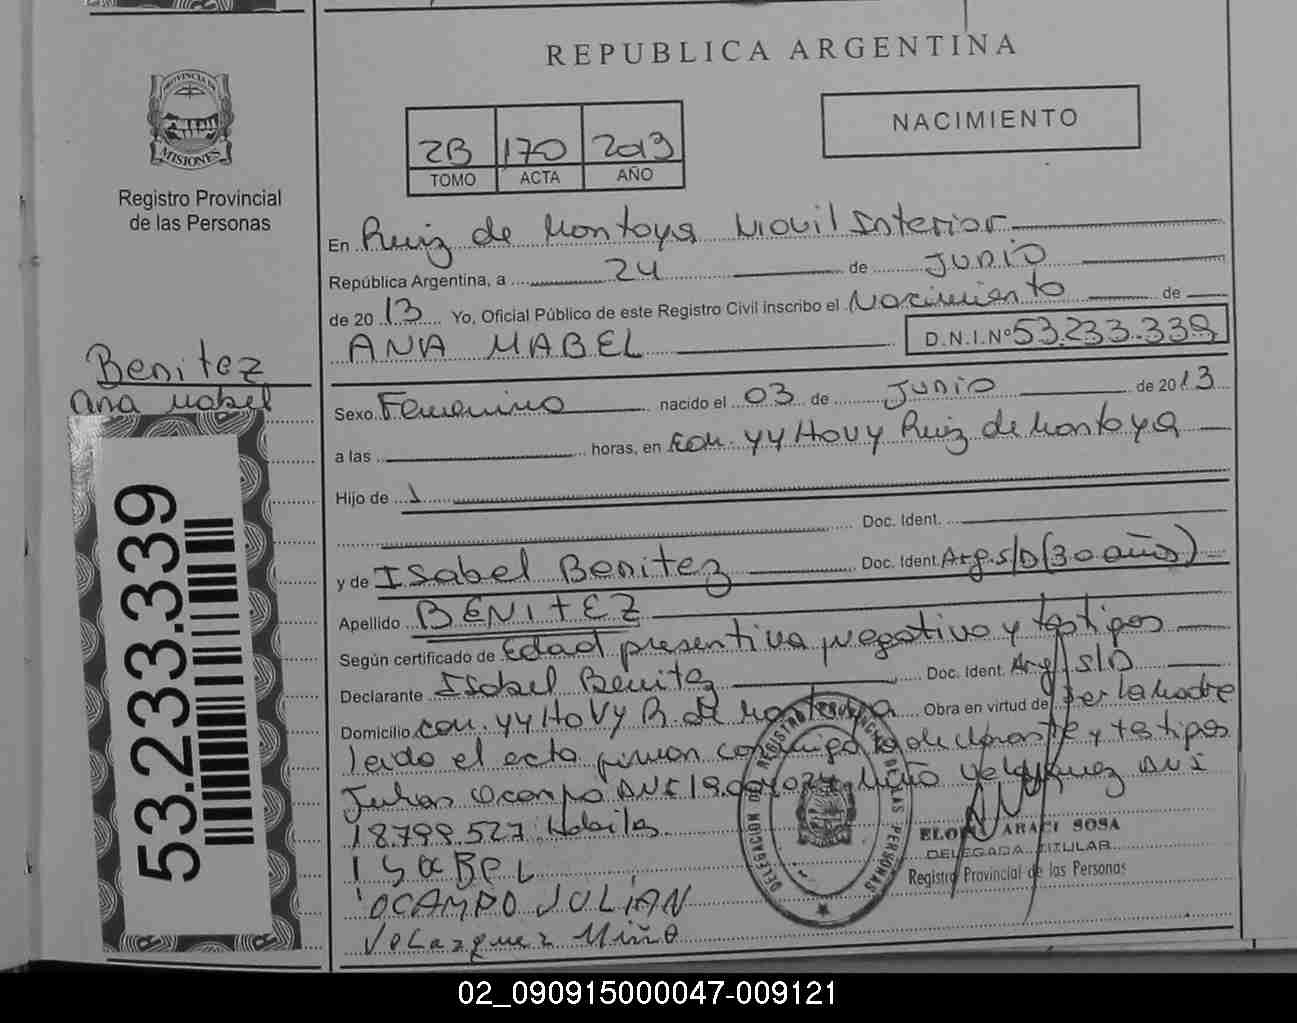 REPUBLICA ARGENTINA
PROVINCIA DE
MISIONES
Registro Provincial
de las Personas
2B 170 2013
TOMO ACTA AÑO
NACIMIENTO
En Ruiz de Montoya Movil Interior
República Argentina, a 24 de Junio
de 2013 Yo, Oficial Público de este Registro Civil inscribo el Nacimiento de
ANA MABEL D.N.I.Nº 53.233.339
Benitez
Ana Mabel
53.233.339
Sexo Femenino nacido el 03 de Junio de 2013
a las horas, en Com. YY HOVY Ruiz de Montoya
Hijo de
Doc. Ident.
y de Isabel Benitez Doc. Ident. Arg. s/D (30 años)
Apellido BENITEZ
Según certificado de Edad presentiva negativo y testigos
Declarante Isabel Benitez Doc. Ident. Arg s/D
Domicilio com. YY HOVY R. de Montoya Obra en virtud de ser la Madre
leido el acta firman conmigo la declarante y testigos
Julian Ocampo DNI Miño Velazquez DNI
18.799.527 Habiles
ISABEL
OCAMPO JULIAN
Velazquez Miño
DELEGACION DEL REGISTRO PROVINCIAL DE LAS PERSONAS
ARACI SOSA
DELEGADA TITULAR
Registro Provincial de las Personas
02_090915000047-009121